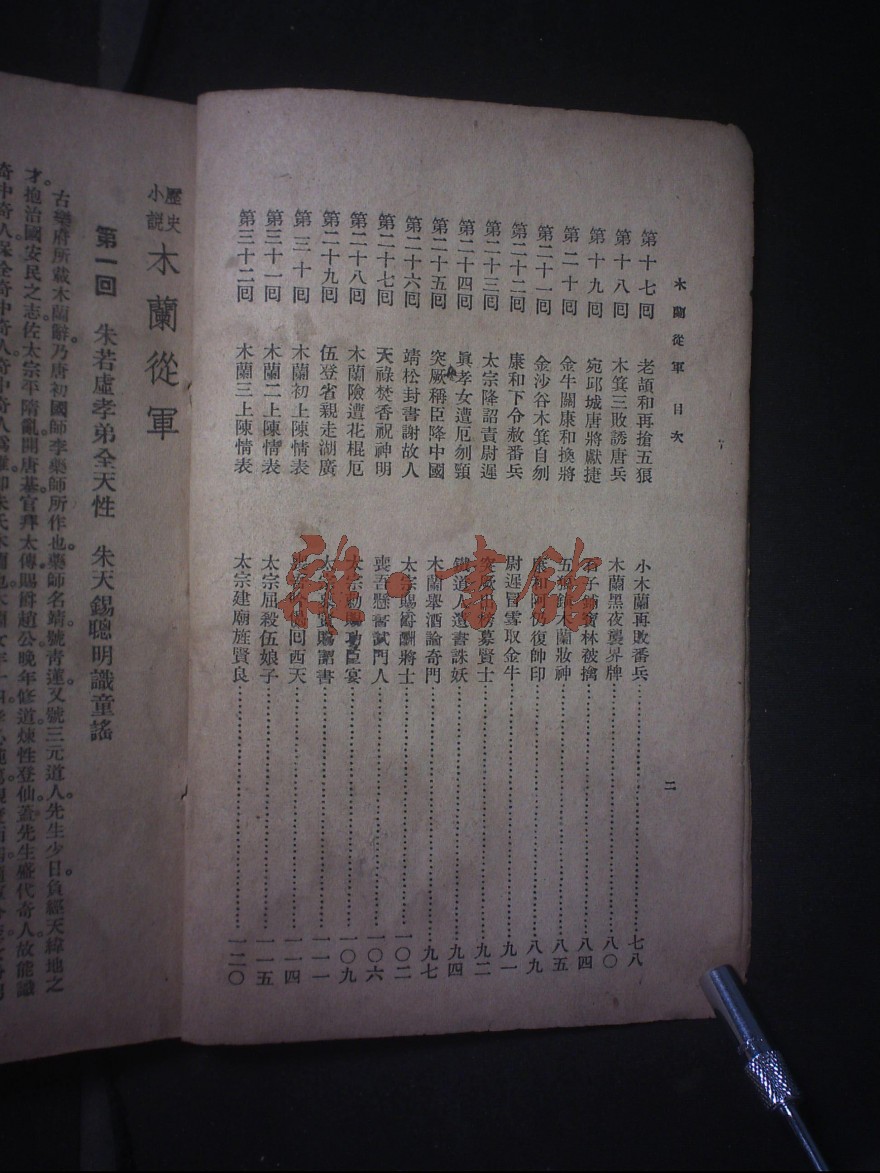 木蘭從軍 目次
二
第十七回 老頡和再搶五狼 小木蘭再敗番兵 七八
第十八回 木箕三敗誘唐兵 木蘭黑夜襲界牌 八〇
第十九回 宛邱城唐將獻捷 林被擒 八四
第二十回 金牛關康和換將 五狼鎮木蘭妝神 八五
第二十一回 金沙谷木箕自刎 康和阿仍復帥印 八九
第二十二回 康和下令赦番兵 尉遲冒雪取金牛 九一
第二十三回 太宗降詔責尉遲 突厥出榜募賢士 九二
第二十四回 眞孝女遭厄刎頸 鐵道人遺書誅妖 九四
第二十五回 突厥稱臣降中國 木蘭舉酒論奇門 九七
第二十六回 靖松封書謝故人 太宗賜爵酬將士 一〇二
第二十七回 天祿焚香祝神明 喪吾懸書試門人 一〇六
第二十八回 木蘭險遭花棍厄 太宗勅賜功臣宴 一〇九
第二十九回 伍登省親走湖廣 太宗賜詔書 一一一
第三十回 木蘭初上陳情表 喪吾回西天 一一四
第三十一回 木蘭二上陳情表 太宗屈殺伍娘子 一一五
第三十二回 木蘭三上陳情表 太宗建廟旌賢良 一二〇
雜·書館
歷史小說 木蘭從軍
第一回 朱若虛孝弟全天性 朱天錫聰明識童謠
古樂府所載木蘭辭。乃唐初國師李藥師所作也。藥師名靖。號靑蓮。又號三元道人。先生少日。負經天緯地之
才。抱治國安民之志。佐太宗平隋亂。開唐基。官拜太傅。賜爵趙公。晚年修道煉性登仙。蓋先生盛代奇人。故能識
奇中奇人。保全奇中奇人。奇中奇人爲誰。卽朱氏木蘭也。